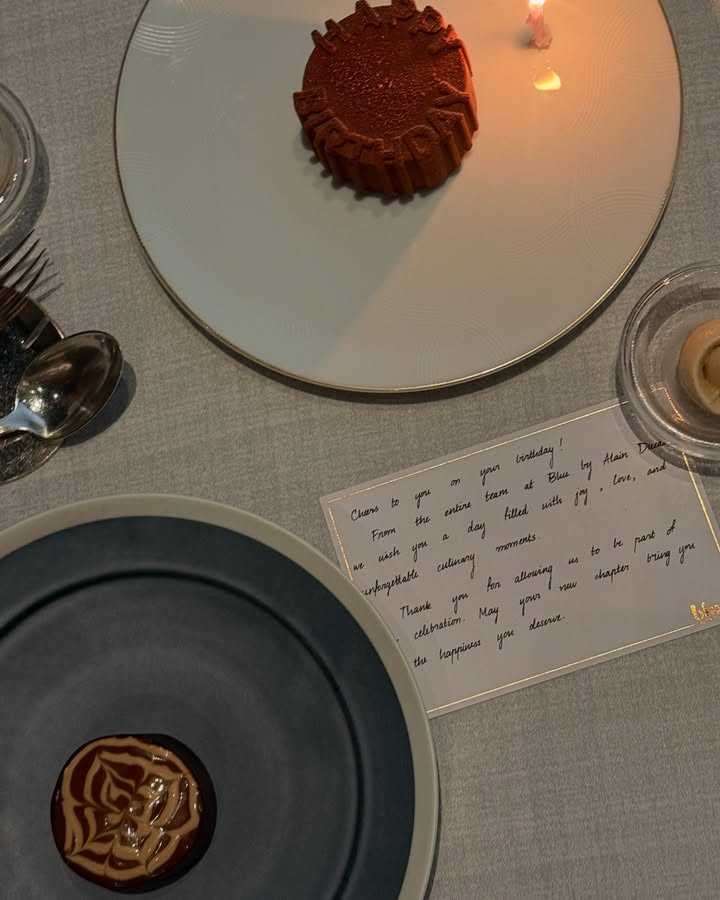 HAPPY
BIRTHDAY
Cheers to you on your birthday!
From the entire team at Blue by Alain
we wish you a day filled with joy, love, and
unforgettable culinary moments.
Thank you for allowing us to be part of
celebration. May your new chapter bring you
the happiness you deserve.